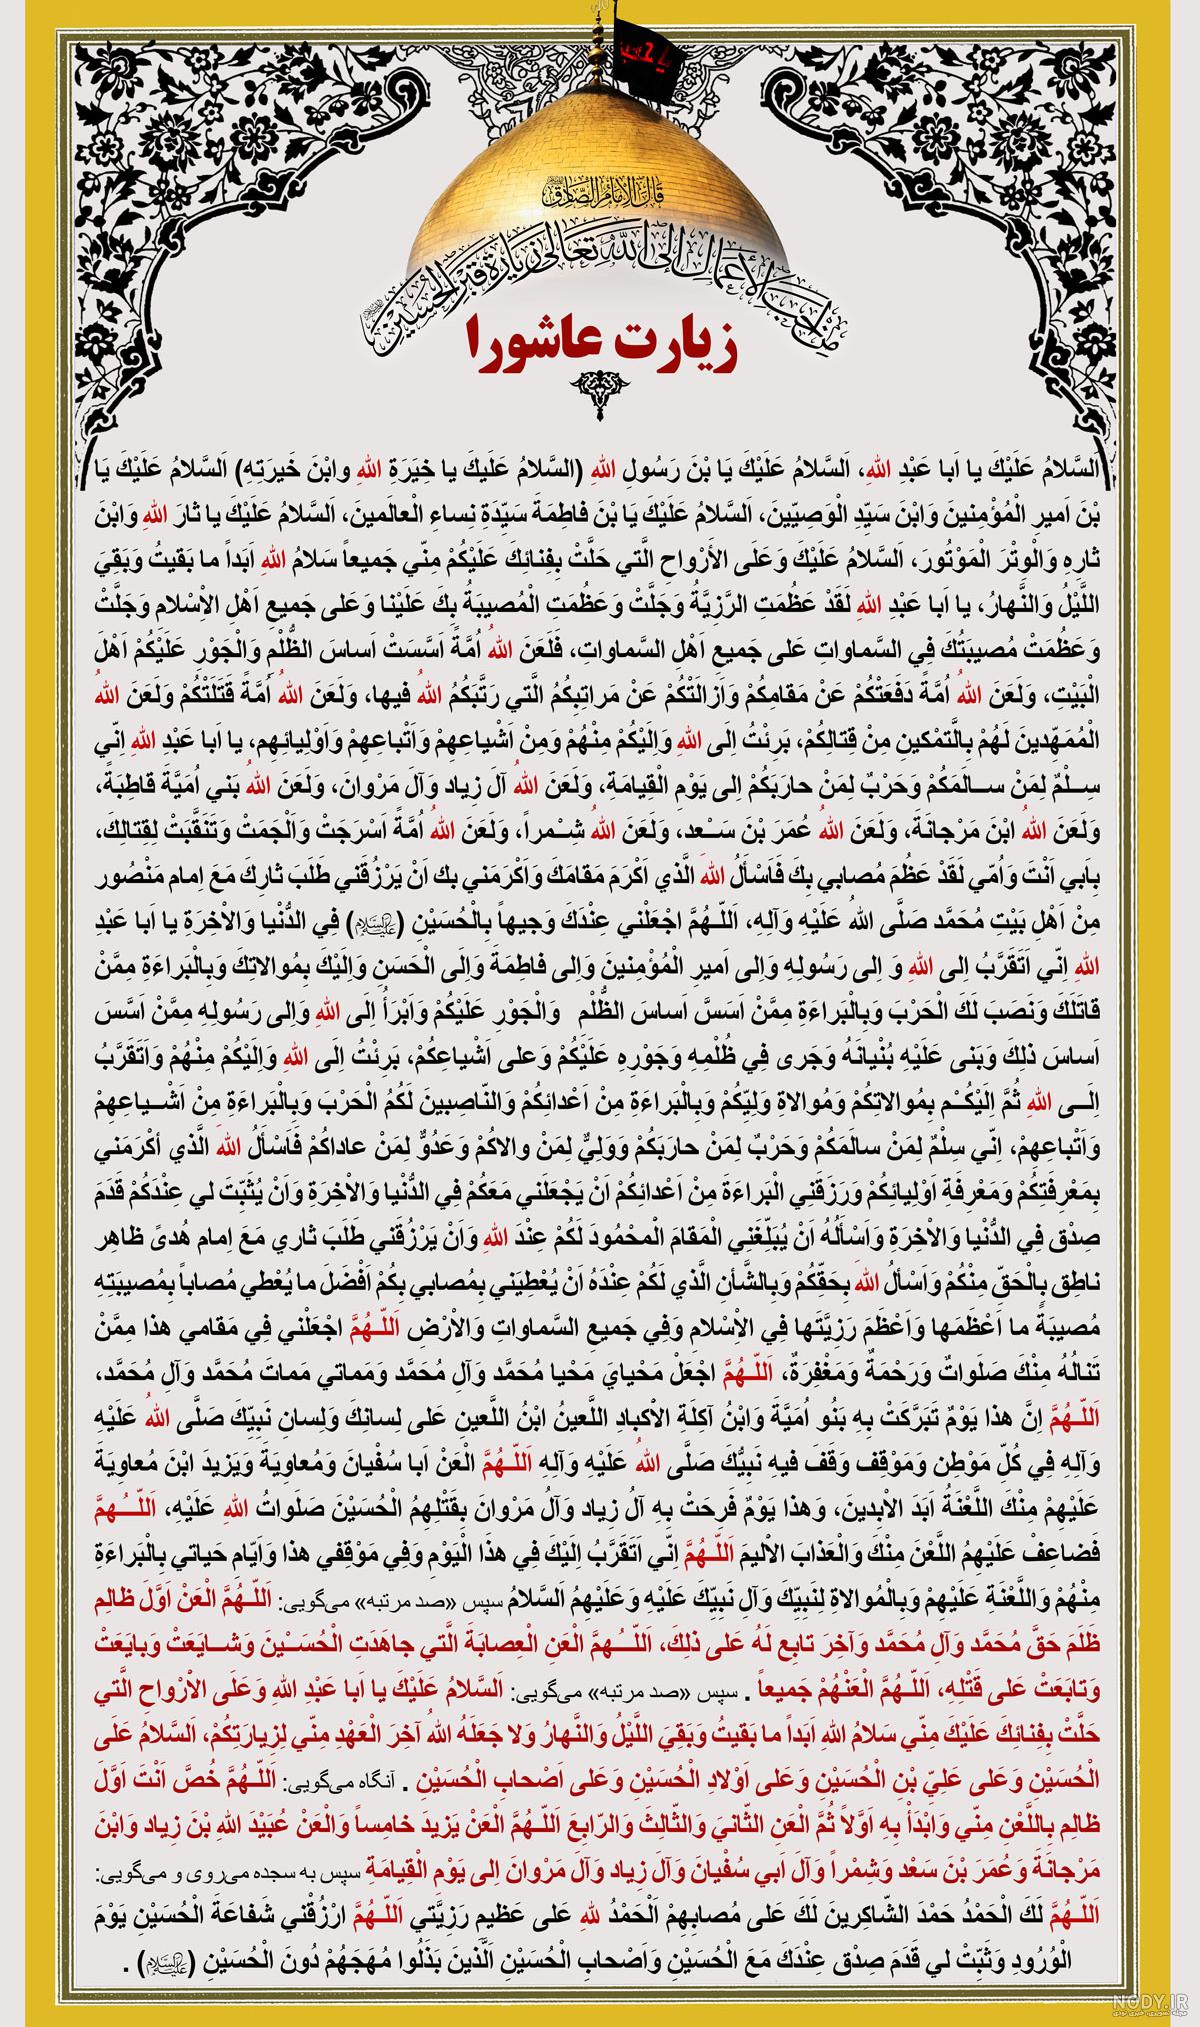 قَالَ الْإِمَامُ الصَّادِقُ
مِنْ أَحَبِّ الْأَعْمَالِ إِلَى اللّٰهِ تَعَالَى زِيَارَةُ قَبْرِ الْحُسَيْنِ
زیارت عاشورا
اَلسَّلامُ عَلَيْكَ يا اَبا عَبْدِ اللهِ، اَلسَّلامُ عَلَيْكَ يَا بْنَ رَسُولِ اللهِ (السَّلامُ عَلَيكَ يا خِيَرَةِ اللهِ وابْنَ خَيرَتِهِ) اَلسَّلامُ عَلَيْكَ يَا
بْنَ اَميرِ الْمُؤْمِنينَ وَابْنَ سَيِّدِ الْوَصِيّينَ، اَلسَّلامُ عَلَيْكَ يَا بْنَ فاطِمَةَ سَيِّدَةِ نِساءِ الْعالَمينَ، اَلسَّلامُ عَلَيْكَ يا ثارَ اللهِ وَابْنَ
ثارِهِ وَالْوِتْرَ الْمَوْتُورَ، اَلسَّلامُ عَلَيْكَ وَعَلَى الأَرْواحِ الَّتي حَلَّتْ بِفِنائِكَ عَلَيْكُمْ مِنّي جَميعاً سَلامُ اللهِ اَبَداً ما بَقيتُ وَبَقِيَ
اللَّيْلُ وَالنَّهارُ، يا اَبا عَبْدِ اللهِ لَقَدْ عَظُمَتِ الرَّزِيَّةُ وَجَلَّتْ وَعَظُمَتِ الْمُصيبَةُ بِكَ عَلَيْنا وَعَلى جَميعِ اَهْلِ الْاِسْلامِ وَجَلَّتْ
وَعَظُمَتْ مُصيبَتُكَ فِي السَّماواتِ عَلى جَميعِ اَهْلِ السَّماواتِ، فَلَعَنَ اللهُ اُمَّةً اَسَّسَتْ اَساسَ الظُّلْمِ وَالْجَوْرِ عَلَيْكُمْ اَهْلَ
الْبَيْتِ، وَلَعَنَ اللهُ اُمَّةً دَفَعَتْكُمْ عَنْ مَقامِكُمْ وَاَزالَتْكُمْ عَنْ مَراتِبِكُمُ الَّتي رَتَّبَكُمُ اللهُ فيها، وَلَعَنَ اللهُ اُمَّةً قَتَلَتْكُمْ وَلَعَنَ اللهُ
الْمُمَهِّدينَ لَهُمْ بِالتَّمْكينِ مِنْ قِتالِكُمْ، بَرِئْتُ اِلَى اللهِ وَاِلَيْكُمْ مِنْهُمْ وَمِنْ اَشْياعِهِمْ وَاَتْباعِهِمْ وَاَوْلِيائِهِم، يا اَبا عَبْدِ اللهِ اِنّي
سِلْمٌ لِمَنْ سالَمَكُمْ وَحَرْبٌ لِمَنْ حارَبَكُمْ اِلى يَوْمِ الْقِيامَةِ، وَلَعَنَ اللهُ آلَ زِياد وَآلَ مَرْوانَ، وَلَعَنَ اللهُ بَني اُمَيَّةَ قاطِبَةً،
وَلَعَنَ اللهُ ابْنَ مَرْجانَةَ، وَلَعَنَ اللهُ عُمَرَ بْنَ سَعْد، وَلَعَنَ اللهُ شِمْراً، وَلَعَنَ اللهُ اُمَّةً اَسْرَجَتْ وَاَلْجَمَتْ وَتَنَقَّبَتْ لِقِتالِكَ،
بِاَبي اَنْتَ وَاُمّي لَقَدْ عَظُمَ مُصابي بِكَ فَاَسْأَلُ اللهَ الَّذي اَكْرَمَ مَقامَكَ وَاَكْرَمَني بك اَنْ يَرْزُقَني طَلَبَ ثارِكَ مَعَ اِمام مَنْصُور
مِنْ اَهْلِ بَيْتِ مُحَمَّد صَلَّى اللهُ عَلَيْهِ وَآلِهِ، اَللّـهُمَّ اجْعَلْني عِنْدَكَ وَجيهاً بِالْحُسَيْنِ (عليه‌السلام) فِي الدُّنْيا وَالاْخِرَةِ يا اَبا عَبْدِ
اللهِ اِنّي اَتَقَرَّبُ اِلى اللهِ وَ اِلى رَسُولِهِ وَاِلى اَميرِ الْمُؤْمِنينَ وَاِلى فاطِمَةَ وَاِلَى الْحَسَنِ وَاِلَيْكَ بِمُوالاتِكَ وَبِالْبَراءَةِ مِمَّنْ
قاتَلَكَ وَنَصَبَ لَكَ الْحَرْبَ وَبِالْبَراءَةِ مِمَّنْ اَسَسَّ اَساسَ الظُّلْمِ وَالْجَوْرِ عَلَيْكُمْ وَاَبْرَأُ اِلَى اللهِ وَاِلى رَسُولِهِ مِمَّنْ اَسَّسَ
اَساسَ ذلِكَ وَبَنى عَلَيْهِ بُنْيانَهُ وَجَرى فِي ظُلْمِهِ وَجَوْرِهِ عَلَيْكُمْ وَعلى اَشْياعِكُمْ، بَرِئْتُ اِلَى اللهِ وَاِلَيْكُمْ مِنْهُمْ وَاَتَقَرَّبُ
اِلَى اللهِ ثُمَّ اِلَيْكُمْ بِمُوالاتِكُمْ وَمُوالاةِ وَلِيِّكُمْ وَبِالْبَراءَةِ مِنْ اَعْدائِكُمْ وَالنّاصِبينَ لَكُمُ الْحَرْبَ وَبِالْبَراءَةِ مِنْ اَشْياعِهِمْ
وَاَتْباعِهِمْ، اِنّي سِلْمٌ لِمَنْ سالَمَكُمْ وَحَرْبٌ لِمَنْ حارَبَكُمْ وَوَلِيٌّ لِمَنْ والاكُمْ وَعَدُوٌّ لِمَنْ عاداكُمْ فَاَسْأَلُ اللهَ الَّذي أكْرَمَني
بِمَعْرِفَتِكُمْ وَمَعْرِفَةِ اَوْلِيائِكُمْ وَرَزَقَنِي الْبَراءَةَ مِنْ اَعْدائِكُمْ اَنْ يَجْعَلَني مَعَكُمْ فِي الدُّنْيا وَالاْخِرَةِ وَاَنْ يُثَبِّتَ لي عِنْدَكُمْ قَدَمَ
صِدْق فِي الدُّنْيا وَالاْخِرَةِ وَاَسْأَلُهُ اَنْ يُبَلِّغَنِي الْمَقامَ الْمَحْمُودَ لَكُمْ عِنْدَ اللهِ وَاَنْ يَرْزُقَني طَلَبَ ثاري مَعَ اِمام هُدىً ظاهِر
ناطِق بِالْحَقِّ مِنْكُمْ وَاَسْألُ اللهَ بِحَقِّكُمْ وَبِالشَّأنِ الَّذي لَكُمْ عِنْدَهُ اَنْ يُعْطِيَني بِمُصابي بِكُمْ اَفْضَلَ ما يُعْطي مُصاباً بِمُصيبَتِهِ
مُصيبَةً ما اَعْظَمَها وَاَعْظَمَ رَزِيَّتَها فِي الاِسْلامِ وَفِي جَميعِ السَّماواتِ وَالاَرْضِ اَللّـهُمَّ اجْعَلْني فِي مَقامي هذا مِمَّنْ
تَنالُهُ مِنْكَ صَلَواتٌ وَرَحْمَةٌ وَمَغْفِرَةٌ، اَللّـهُمَّ اجْعَلْ مَحْيايَ مَحْيا مُحَمَّد وَآلِ مُحَمَّد وَمَماتي مَماتَ مُحَمَّد وَآلِ مُحَمَّد،
اَللّـهُمَّ اِنَّ هذا يَوْمٌ تَبَرَّكَتْ بِهِ بَنُو اُمَيَّةَ وَابْنُ آكِلَةِ الاَكبادِ اللَّعينُ ابْنُ اللَّعينِ عَلى لِسانِكَ وَلِسانِ نَبِيِّكَ صَلَّى اللهُ عَلَيْهِ
وَآلِهِ فِي كُلِّ مَوْطِن وَمَوْقِف وَقَفَ فيهِ نَبِيُّكَ صَلَّى اللهُ عَلَيْهِ وَآلِهِ اَللّـهُمَّ الْعَنْ اَبا سُفْيانَ وَمُعاوِيَةَ وَيَزيدَ ابْنَ مُعاوِيَةَ
عَلَيْهِمْ مِنْكَ اللَّعْنَةُ اَبَدَ الاْبِدينَ، وَهذا يَوْمٌ فَرِحَتْ بِهِ آلُ زِياد وَآلُ مَرْوانَ بِقَتْلِهِمُ الْحُسَيْنَ صَلَواتُ اللهِ عَلَيْهِ، اَللّـهُمَّ
فَضاعِفْ عَلَيْهِمُ اللَّعْنَ مِنْكَ وَالْعَذابَ الاَليمَ اَللّـهُمَّ اِنّي اَتَقَرَّبُ اِلَيْكَ فِي هذَا الْيَوْمِ وَفِي مَوْقِفي هذا وَاَيّامِ حَياتي بِالْبَراءَةِ
مِنْهُمْ وَاللَّعْنَةِ عَلَيْهِمْ وَبِالْمُوالاةِ لِنَبِيِّكَ وَآلِ نَبِيِّكَ عَلَيْهِ وَعَلَيْهِمُ السَّلامُ سپس «صد مرتبه» می‌گویی: اَللّـهُمَّ الْعَنْ اَوَّلَ ظالِم
ظَلَمَ حَقَّ مُحَمَّد وَآلِ مُحَمَّد وَآخِرَ تابِع لَهُ عَلى ذلِكَ، اَللّـهُمَّ الْعَنِ الْعِصابَةَ الَّتي جاهَدَتِ الْحُسَيْنَ وَشايَعَتْ وَبايَعَتْ
وَتابَعَتْ عَلى قَتْلِهِ، اَللّـهُمَّ الْعَنْهُمْ جَميعاً . سپس «صد مرتبه» می‌گویی: اَلسَّلامُ عَلَيْكَ يا اَبا عَبْدِ اللهِ وَعَلَى الاَرْواحِ الَّتي
حَلَّتْ بِفِنائِكَ عَلَيْكَ مِنّي سَلامُ اللهِ اَبَداً ما بَقيتُ وَبَقِيَ اللَّيْلُ وَالنَّهارُ وَلا جَعَلَهُ اللهُ آخِرَ الْعَهْدِ مِنّي لِزِيارَتِكُمْ، اَلسَّلامُ عَلَى
الْحُسَيْنِ وَعَلى عَلِيِّ بْنِ الْحُسَيْنِ وَعَلى اَوْلادِ الْحُسَيْنِ وَعَلى اَصْحابِ الْحُسَيْنِ . آنگاه می‌گویی: اَللّـهُمَّ خُصَّ اَنْتَ اَوَّلَ
ظالِم بِاللَّعْنِ مِنّي وَابْدَأْ بِهِ اَوَّلاً ثُمَّ الْعَنِ الثّانيَ وَالثّالِثَ وَالرّابِعَ اَللّـهُمَّ الْعَنْ يَزيدَ خامِساً وَالْعَنْ عُبَيْدَ اللهِ بْنَ زِياد وَابْنَ
مَرْجانَةَ وَعُمَرَ بْنَ سَعْد وَشِمْراً وَآلَ اَبي سُفْيانَ وَآلَ زِياد وَآلَ مَرْوانَ اِلى يَوْمِ الْقِيامَةِ سپس به سجده می‌روی و می‌گویی:
اَللّـهُمَّ لَكَ الْحَمْدُ حَمْدَ الشّاكِرينَ لَكَ عَلى مُصابِهِمْ اَلْحَمْدُ للهِ عَلى عَظيمِ رَزِيَّتي اَللّـهُمَّ ارْزُقْني شَفاعَةَ الْحُسَيْنِ يَوْمَ
الْوُرُودِ وَثَبِّتْ لي قَدَمَ صِدْق عِنْدَكَ مَعَ الْحُسَيْنِ وَاَصْحابِ الْحُسَيْنِ اَلَّذينَ بَذَلُوا مُهَجَهُمْ دُونَ الْحُسَيْنِ (عليه‌السلام) .
NODY.IR